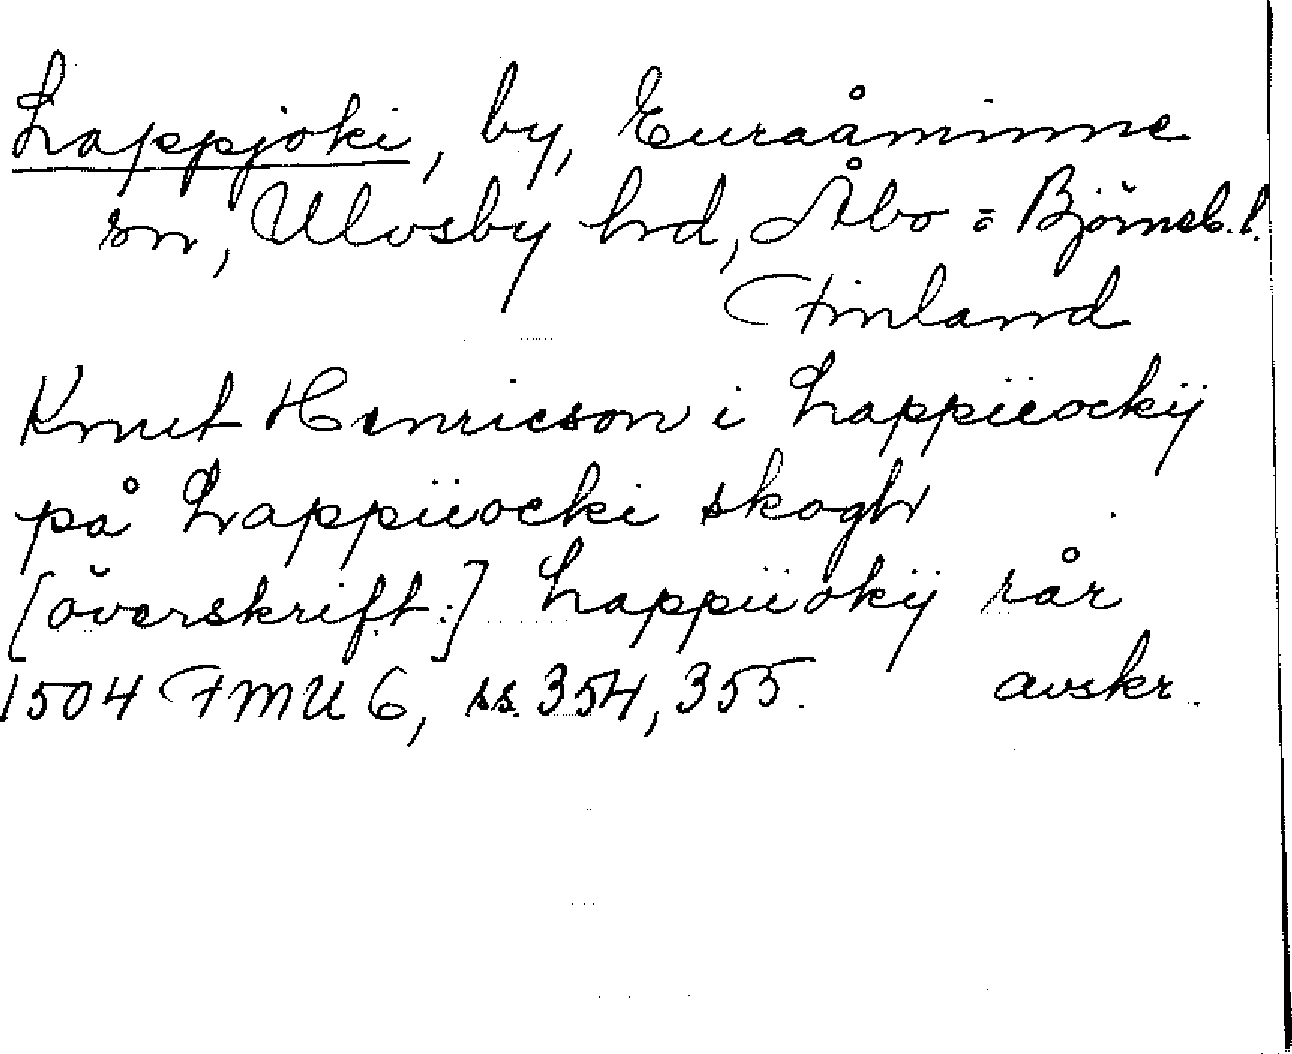 Lappjoki, by, Euraåminne
sn, Ulvsby hd, Åbo = Björneb. l.
Finland
Knut Henricson i Lappiiockij
på Lappiiocki skogh
[överskrift:] Lappiiokij rår
1504 FMU 6, ss. 354, 355. avskr.